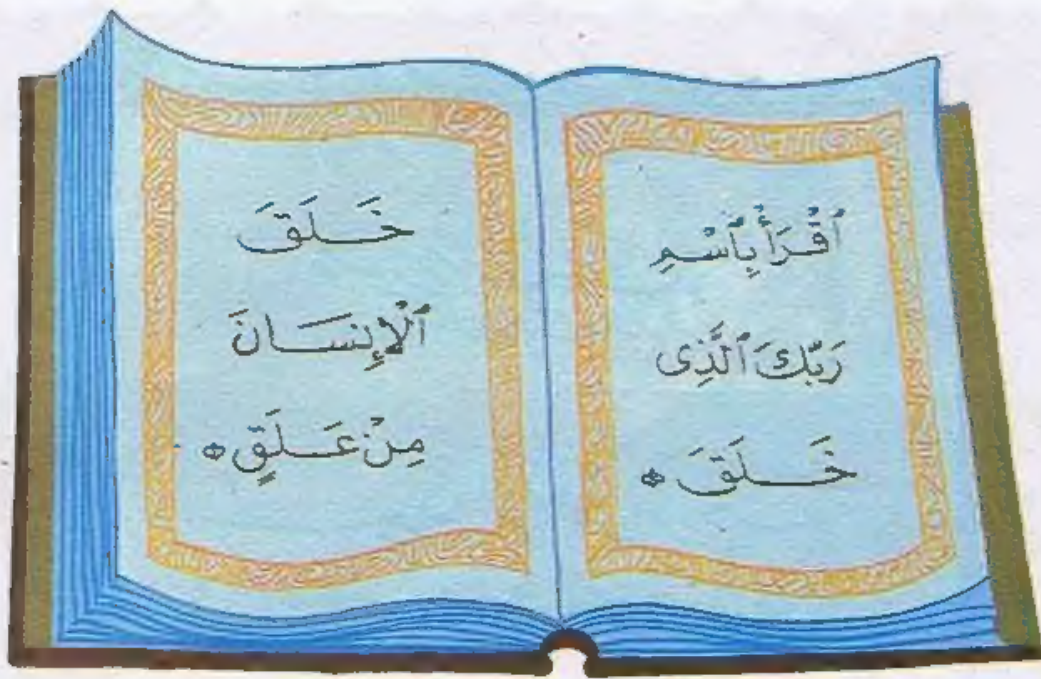 ٱقْرَأْ بِٱسْمِ
رَبِّكَ ٱلَّذِى
خَـلَقَ
خَـلَقَ
ٱلْإِنسَـانَ
مِنْ عَـلَقٍ